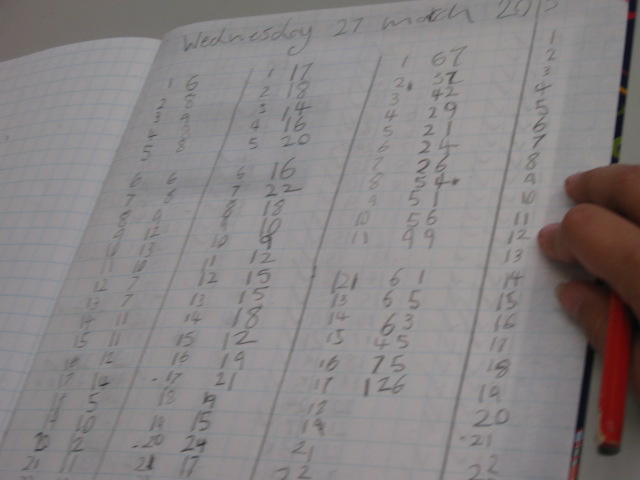 Wednesday 27 march 20
1 6 1 17 1 67 1
2 8 2 18 2. 37 2
3 3 14 3 42 3
4 4 16 4 29 4
5 8 5 20 5 21 5
6 6 6 16 6 24 6
7 8 7 22 7 26 7
8 8 18 8 54 8
9 12 9 10 9 51 9
10 9 10 56 10
11 12 11 99 11
12 7 12 15 12 61 12
13 7 13 15 13 65 13
14 11 14 18 14 63 14
15 11 15 12 15 45 15
16 12 16 19 16 75 16
17 14 17 21 17 126 17
5 18 18
10 19 15 19 19
20 12 20 24 20
21 11 21 17 21 21
22 22